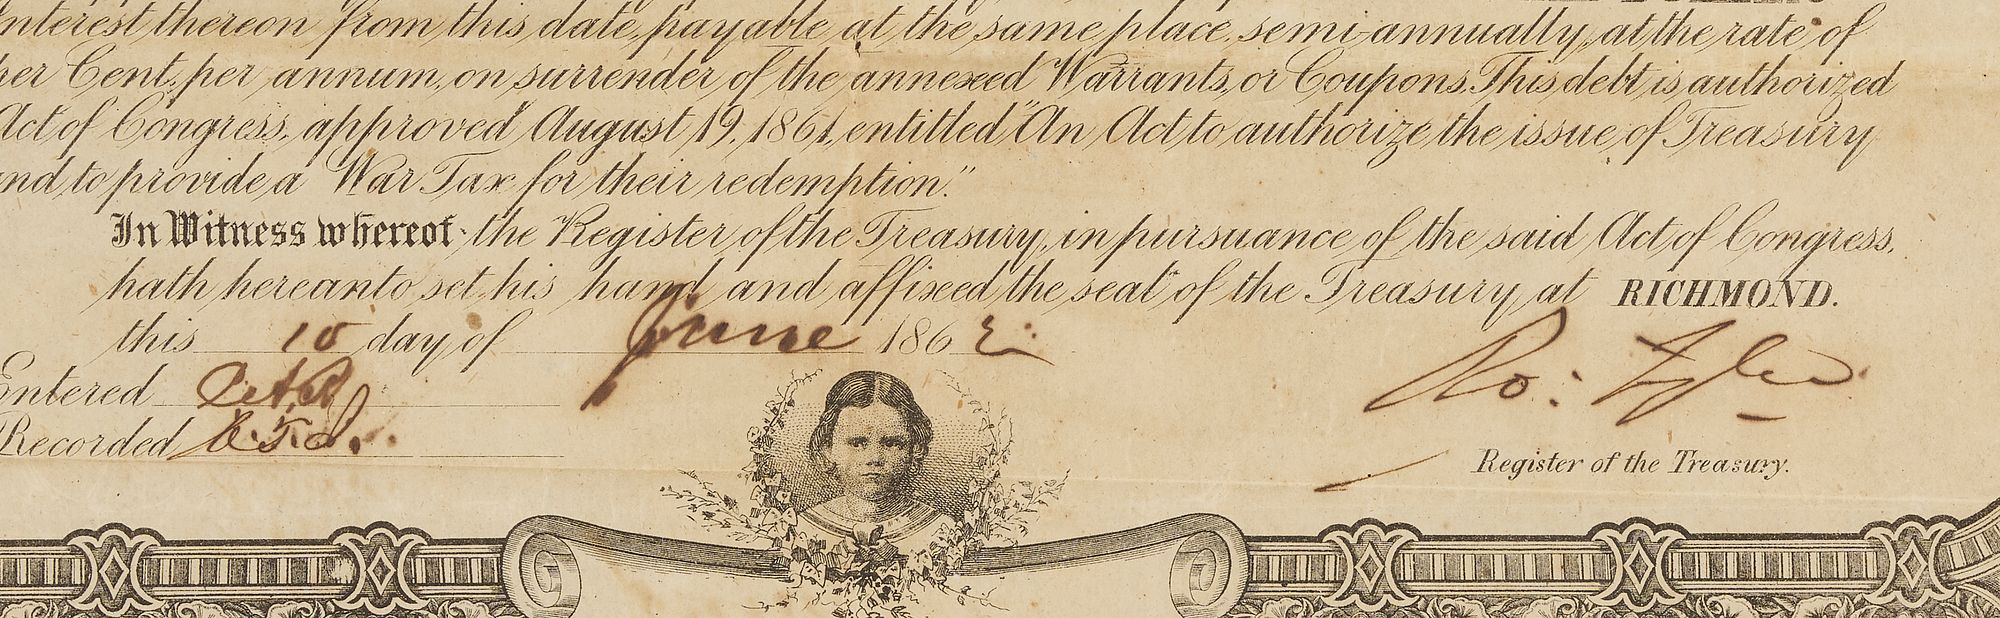 nterest thereon from this date, payable at the same place, semi-annually, at the rate of
per Cent. per annum, on surrender of the annexed Warrants, or Coupons. This debt is authorized
Act of Congress, approved August 19, 1861, entitled "An Act to authorize the issue of Treasury
nd to provide a War Tax for their redemption."
In Witness whereof the Register of the Treasury, in pursuance of the said Act of Congress,
hath hereanto set his hand and affixed the seal of the Treasury, at RICHMOND.
this 10 day of June 1862
Entered
Recorded
Ro: Tyler
Register of the Treasury.